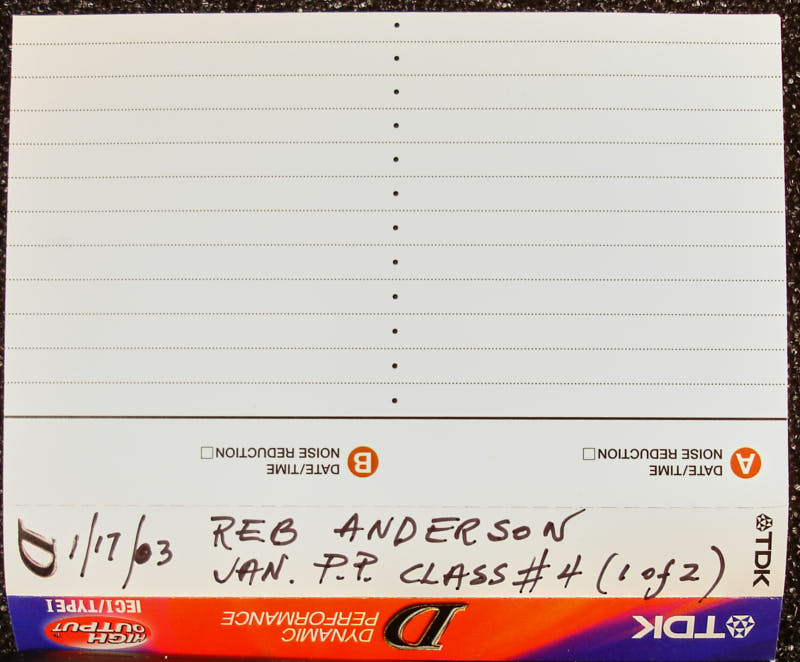 A DATE/TIME
NOISE REDUCTION
B DATE/TIME
NOISE REDUCTION
D 1/17/03 REB ANDERSON
JAN. P.P. CLASS #4 (1 of 2)
TDK
TDK
D DYNAMIC
PERFORMANCE
HIGH
OUTPUT
IECI/TYPEI